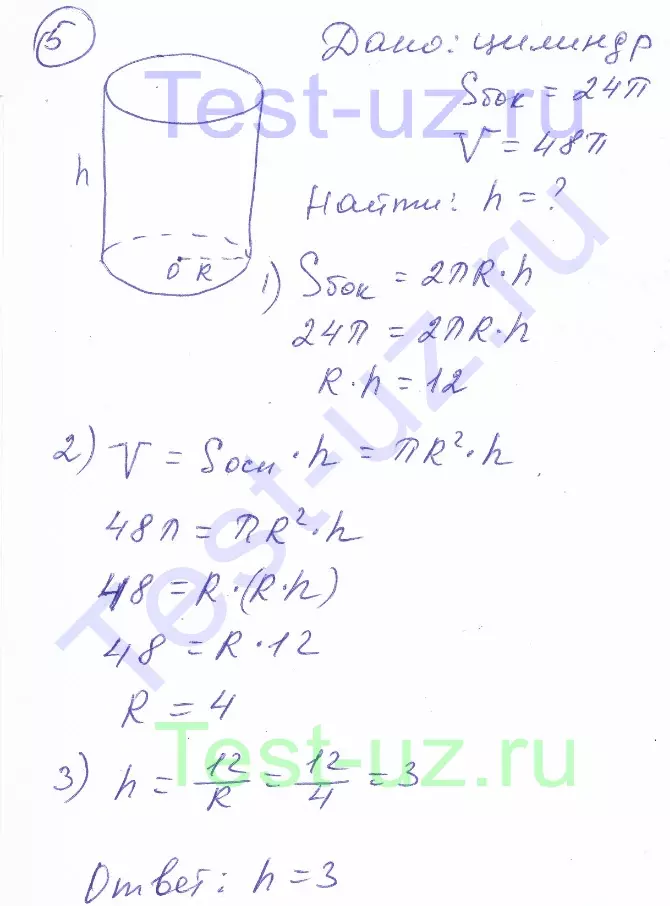 5
Дано: цилиндр
Sбок = 24π
V = 48π
h
Найти: h = ?
O R
1) Sбок = 2πR·h
24π = 2πR·h
R·h = 12
2) V = Sосн·h = πR²·h
48π = πR²·h
48 = R·(R·h)
48 = R·12
R = 4
3) h = 12/R = 12/4 = 3
Ответ: h = 3
Test-uz.ru
Test-uz.ru
Test-uz.ru